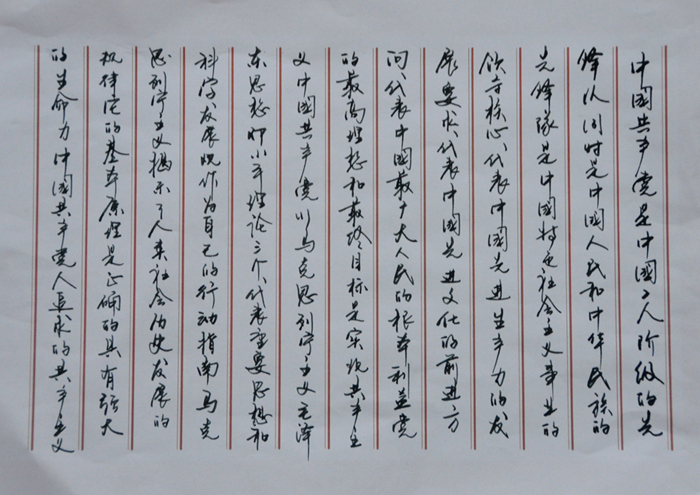 中国共产党是中国工人阶级的先
锋队同时是中国人民和中华民族的
先锋隊是中国特色社会主义事业的
领导核心代表中国先进生产力的发
展要求代表中国先进文化的前进方
向代表中国最广大人民的根本利益党
的最高理想和最终目标是实现共产主
义中国共产党以马克思列宁主义毛泽
东思想邓小平理论三个代表重要思想和
科学发展观作为自己的行动指南马克
思列宁主义揭示了人类社会历史发展的
规律它的基本原理是正确的具有强大
的生命力中国共产党人追求的共产主义